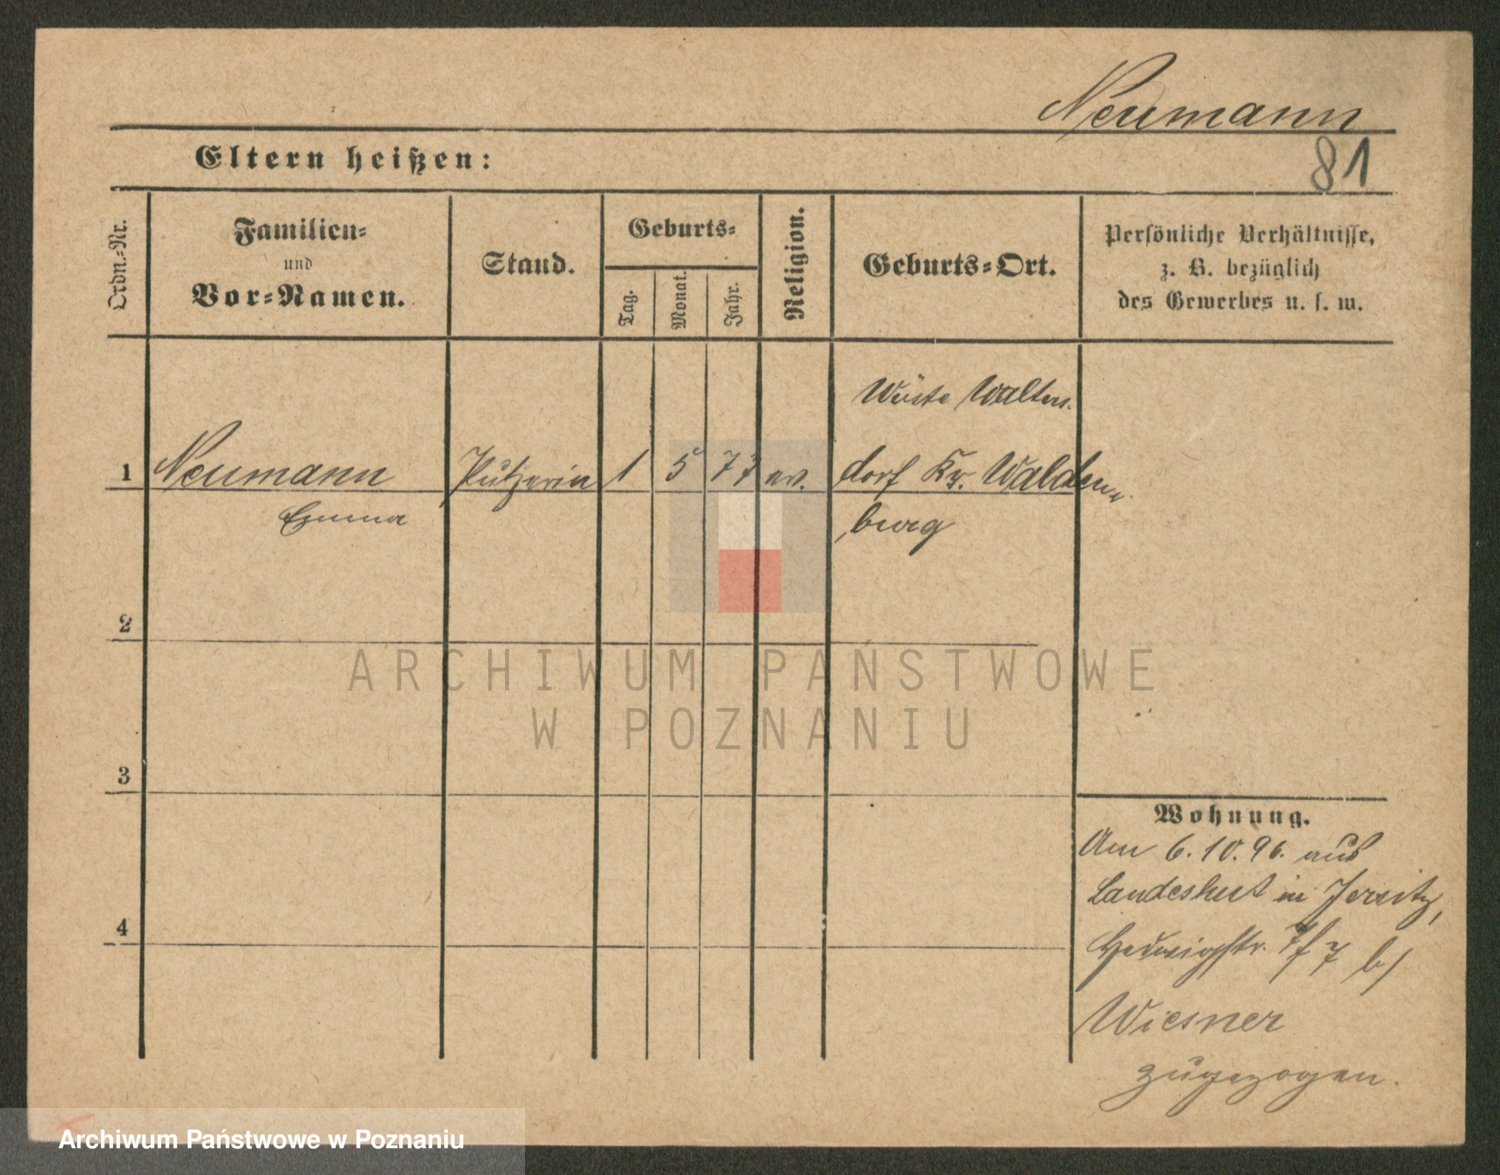 Neumann
81
Eltern heißen:
Ordn.-Nr.
Familien-
und
Vor-Namen.
Stand.
Geburts-
Tag.
Monat.
Jahr.
Religion.
Geburts-Ort.
Persönliche Verhältnisse,
z. B. bezüglich
des Gewerbes u. s. w.
Wüste Walters-
1 Neumann Putzerin 1 5 77 ev. dorf Kr. Walden-
Emma burg
2
ARCHIWUM PAŃSTWOWE
W POZNANIU
3
Wohnung.
Am 6.10.96. aus
Landeshut in Jersitz,
4
Hedwigstr. 7 b/
Wiesner
zugezogen.
Archiwum Państwowe w Poznaniu